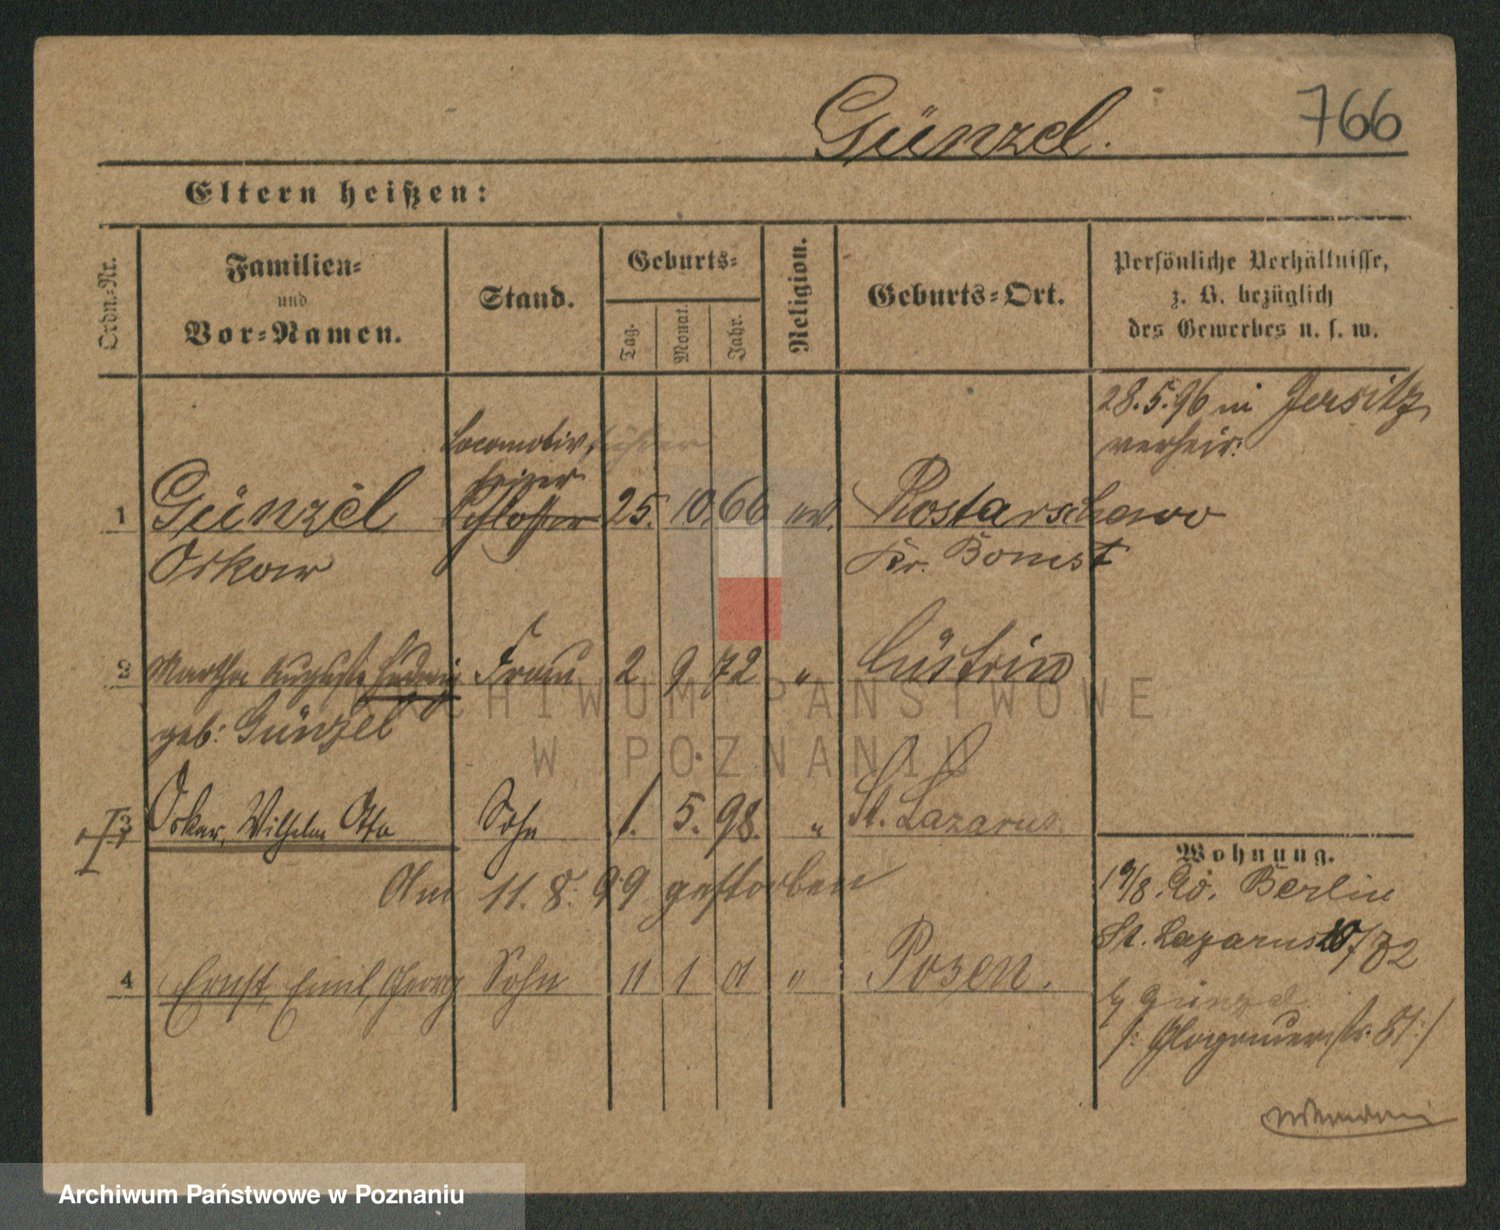 Günzel.
766
Eltern heißen:
Ordn.-Nr.
Familien-
und
Vor-Namen.
Stand.
Geburts-
Tag.
Monat.
Jahr.
Religion.
Geburts-Ort.
Persönliche Verhältnisse,
z. B. bezüglich
des Gewerbes u. s. w.
28.5.96 in Jersitz
verheir:
Locomotivführer
heizer
1 Günzel Schlosser 25. 10. 66 ev. Rostarschewo
Oskar Kr. Bomst
2 Martha Auguste Hedwig Frau 2 9 72 " Cüstrin
geb: Günzel
3 Oskar, Wilhelm Otto Sohn 1. 5. 98. " St. Lazarus.
Am 11. 8. 99 gestorben
4 Ernst, Emil, Georg Sohn 11 1 01 " Posen.
Wohnung.
19/8. 90. Berlin
St. Lazarus
Günzel
/: Glogauerstr. 81 :/
ARCHIWUM PAŃSTWOWE
W POZNANIU
Archiwum Państwowe w Poznaniu